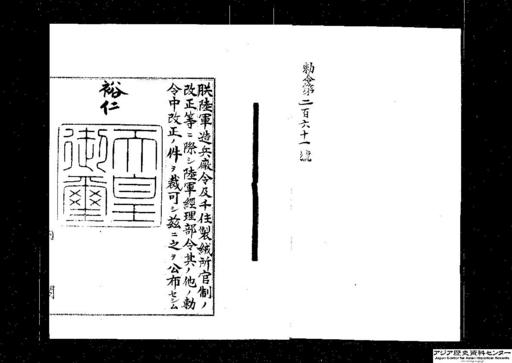 勅令第二百六十一號
朕陸軍造兵廠令及千住製絨所官制ノ
改正等ニ際シ陸軍經理部令其ノ他ノ勅
令中改正ノ件ヲ裁可シ茲ニ之ヲ公布セシム
裕仁
天皇御璽
内閣
アジア歴史資料センター
Japan Center for Asian Historical Records